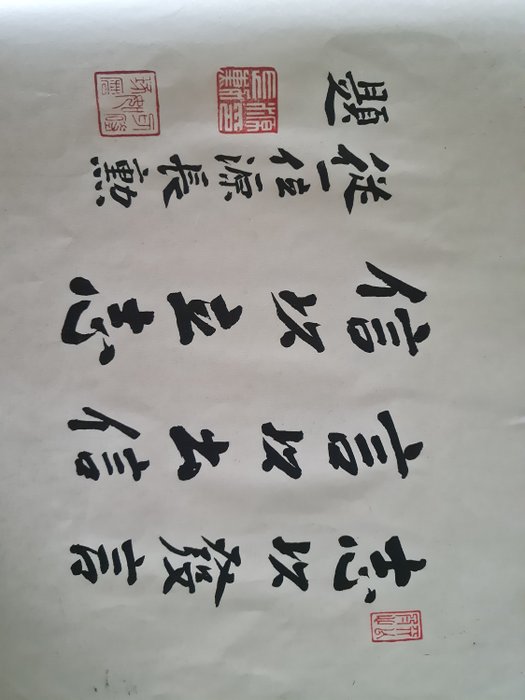 志以發言
言以出信
信以立志
從一位源長勳
題